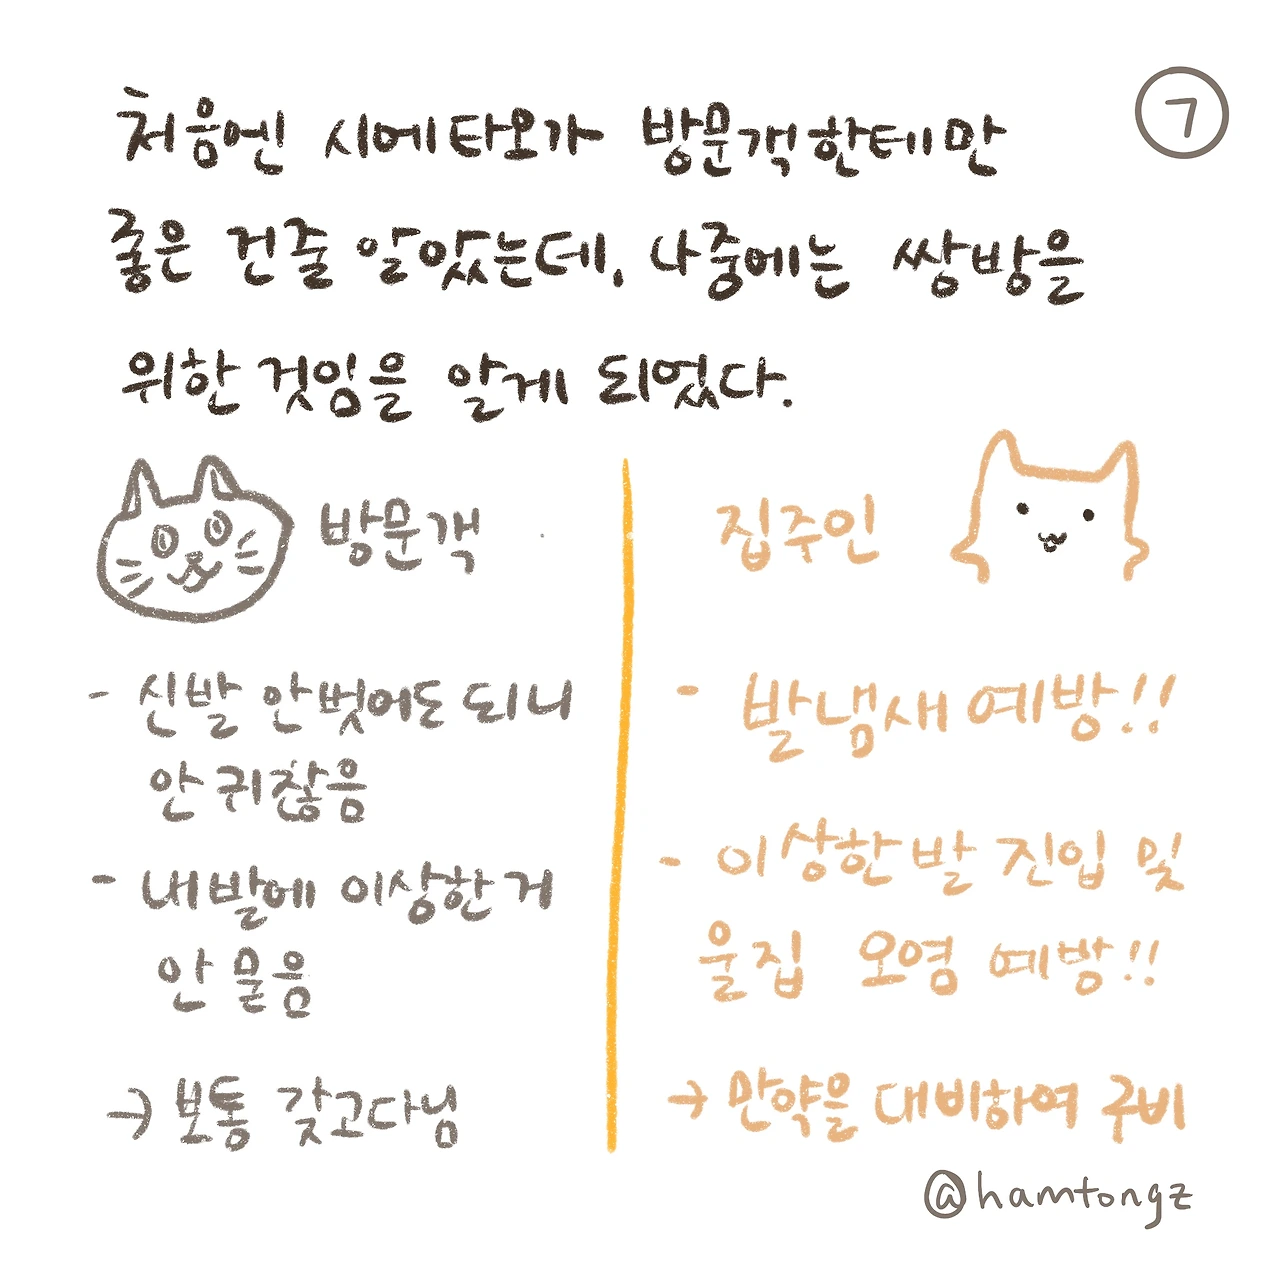 ⑦
처음엔 시에타오가 방문객한테만
좋은 건줄 알았는데, 나중에는 쌍방을
위한 것임을 알게 되었다.
방문객
- 신발 안벗어도 되니
안 귀찮음
- 내발에 이상한 거
안 묻음
→ 보통 갖고다님
집주인
- 발냄새 예방!!
- 이상한 발 진입 및
울집 오염 예방!!
→ 만약을 대비하여 구비
@hamtongz